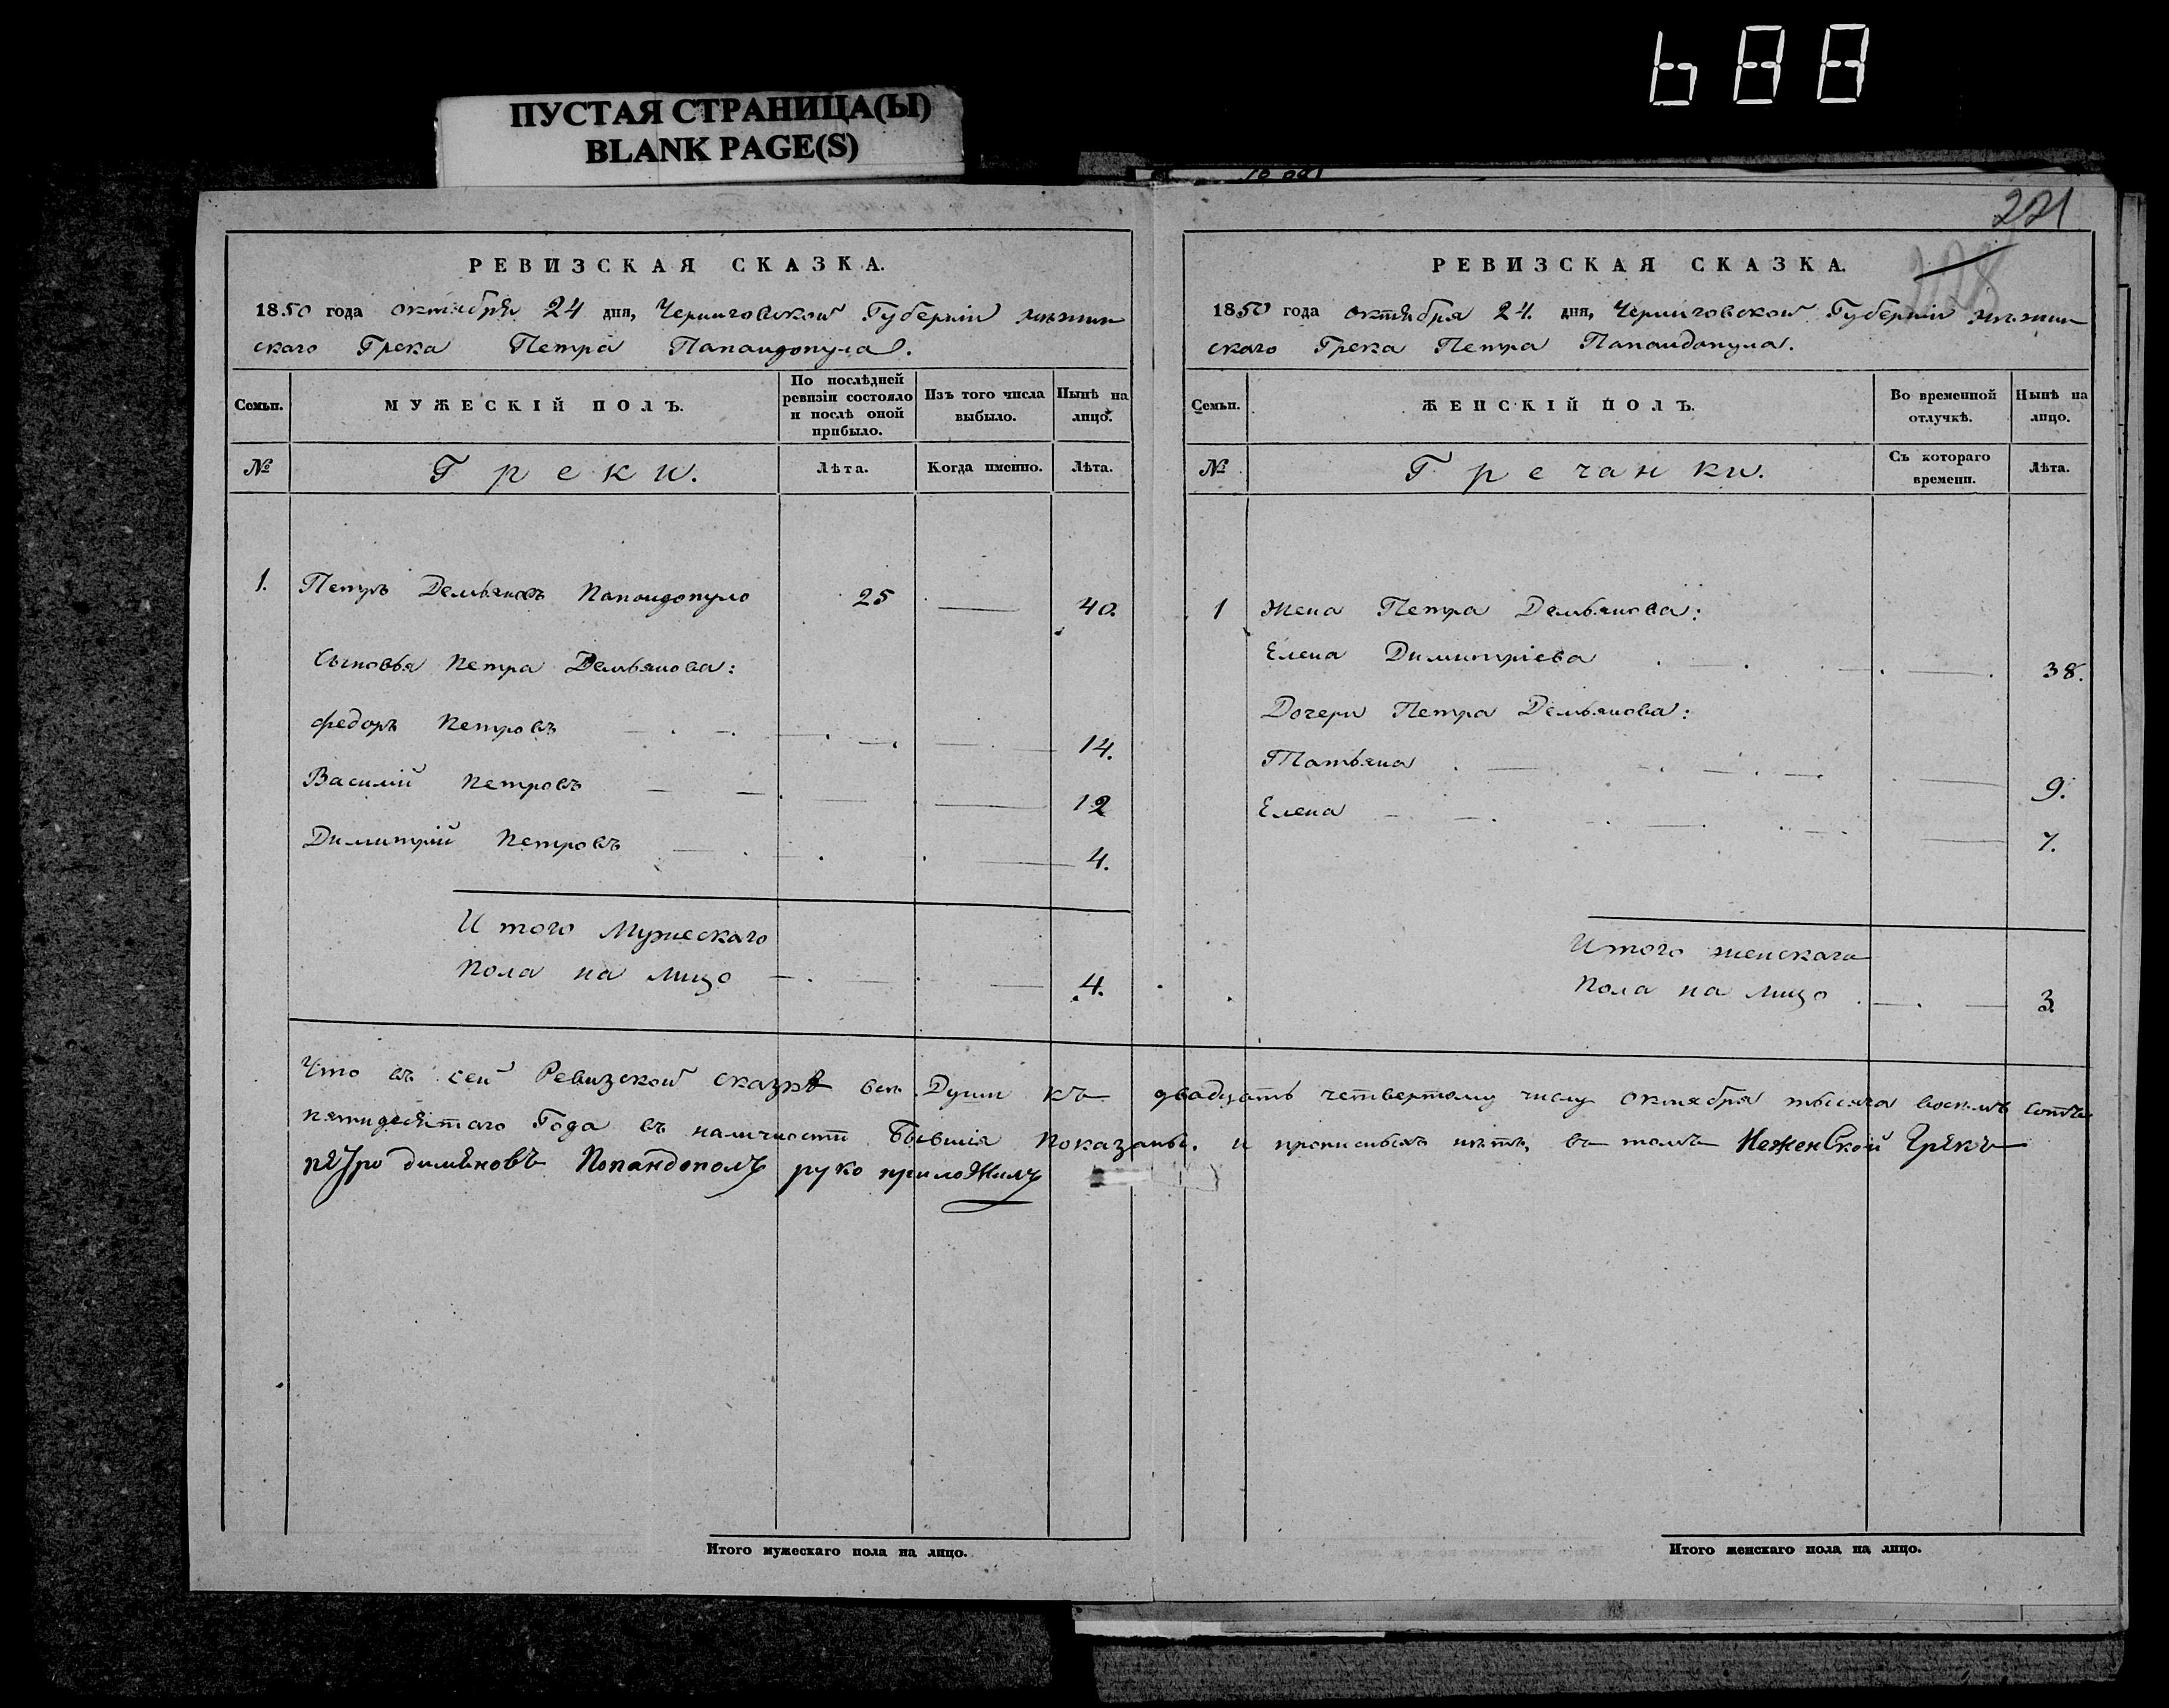 688
ПУСТАЯ СТРАНИЦА(Ы)
BLANK PAGE(S)
221
228
РЕВИЗСКАЯ СКАЗКА.
1850 года октября 24 дня, Черниговской Губерніи нѣжин
скаго Грека Петра Папандопула.
Семьи. МУЖЕСКІЙ ПОЛЪ. По послѣдней ревизіи состояло и послѣ оной прибыло. Изъ того числа выбыло. Нынѣ на лицо.
№ Греки. Лѣта. Когда именно. Лѣта.
1. Петръ Демьяновъ Папандопуло 25 — 40.
Сыновья Петра Демьянова:
Федоръ Петровъ 14.
Василій Петровъ 12
Димитрій Петровъ 4.
Итого Мужескаго
Пола на лицо 4.
РЕВИЗСКАЯ СКАЗКА.
1850 года октября 24. дня, Черниговской Губерніи нѣжин
скаго Грека Петра Папандопула.
Семьи. ЖЕНСКІЙ ПОЛЪ. Во временной отлучкѣ. Нынѣ на лицо.
№ Гречанки. Съ котораго времени. Лѣта.
1 Жена Петра Демьянова:
Елена Димитріева 38.
Дочери Петра Демьянова:
Татьяна 9.
Елена 7.
Итого женскаго
Пола на лицо 3.
Что въ сей Ревизской сказкѣ всѣ Души къ двадцать четвертому числу Октября тысяча восемь сотъ
пятидесятаго Года въ наличности Бывшія показаны. и прописныхъ нѣтъ, въ томъ Неженской Грекъ
петро димяновъ Попандополъ руко приложилъ
Итого мужескаго пола на лицо.
Итого женскаго пола на лицо.